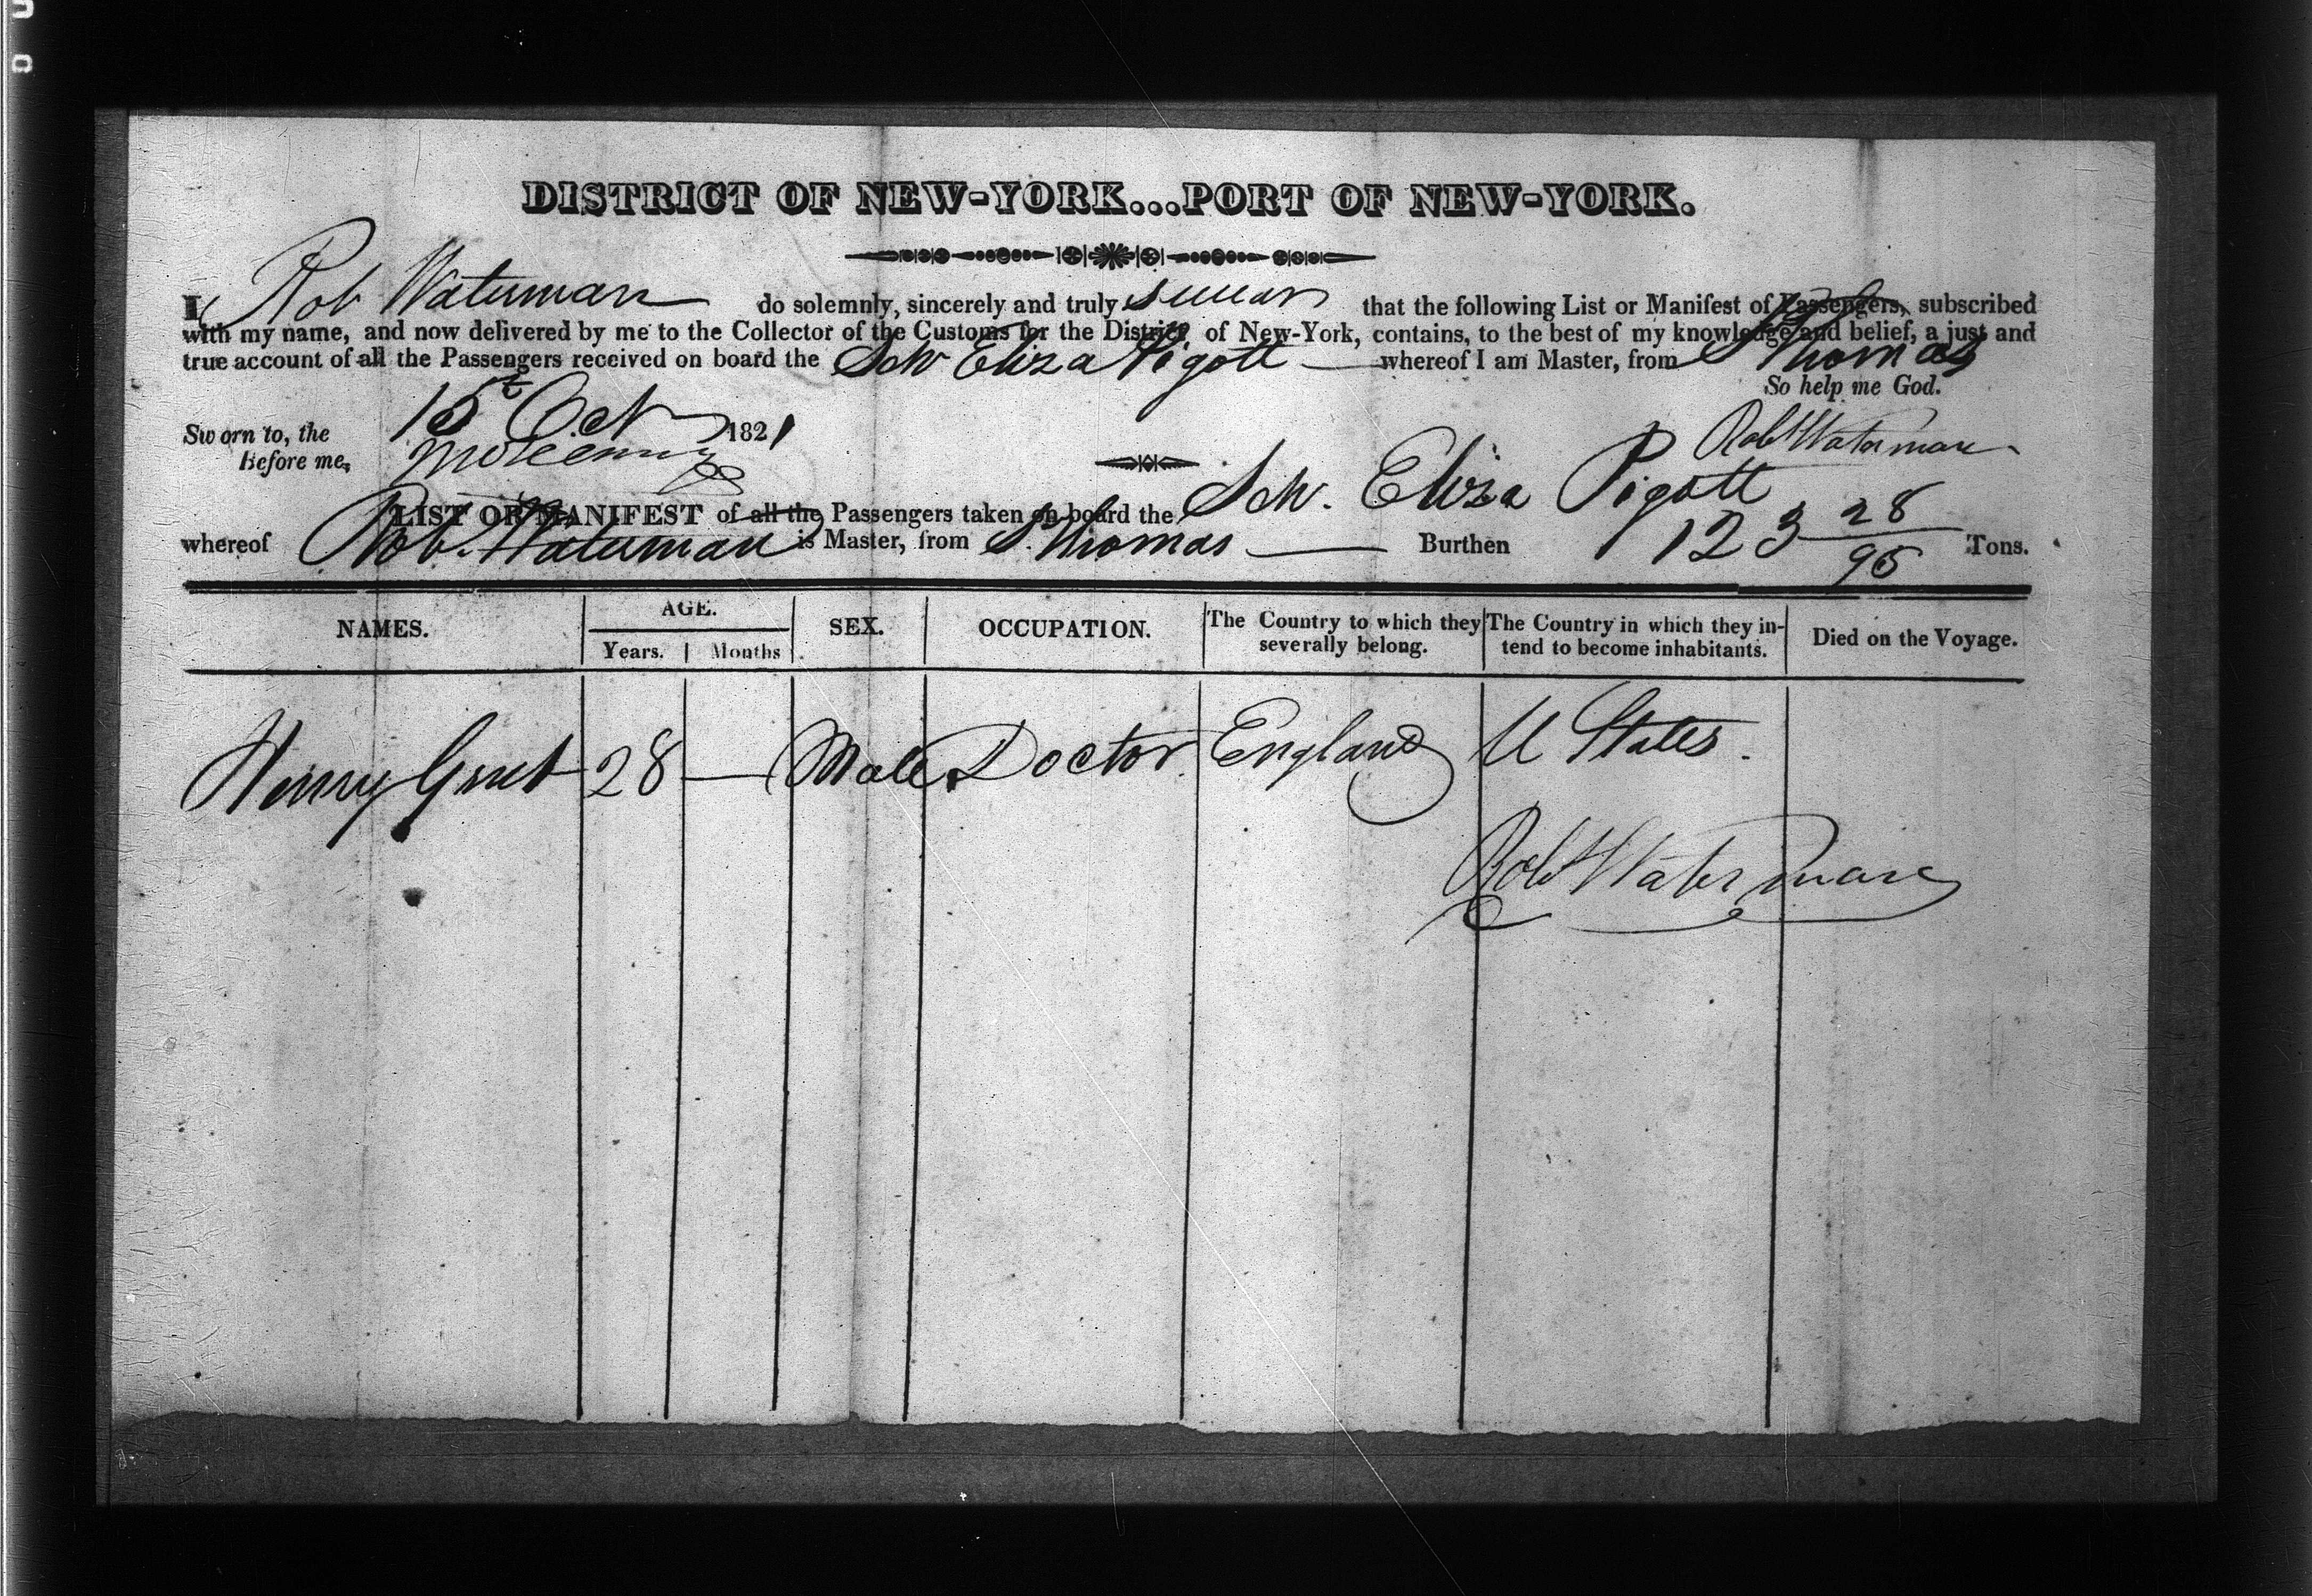 DISTRICT OF NEW-YORK...PORT OF NEW-YORK.
I, Rob Waterman do solemnly, sincerely and truly swear that the following List or Manifest of Passengers, subscribed
with my name, and now delivered by me to the Collector of the Customs for the District of New-York, contains, to the best of my knowledge and belief, a just and
true account of all the Passengers received on board the Schr Eliza Pigott whereof I am Master, from S Thomas
So help me God.
Sworn to, the 15 Oct 1821
Before me,
Robt Waterman
LIST OR MANIFEST of all the Passengers taken on board the Schr. Eliza Pigott
whereof Rob. Waterman is Master, from S. Thomas Burthen 123 28/95 Tons.
NAMES. AGE. SEX. OCCUPATION. The Country to which they severally belong. The Country in which they intend to become inhabitants. Died on the Voyage.
Years. Months
Henry 28 — Male Doctor England U States.
Robt Waterman